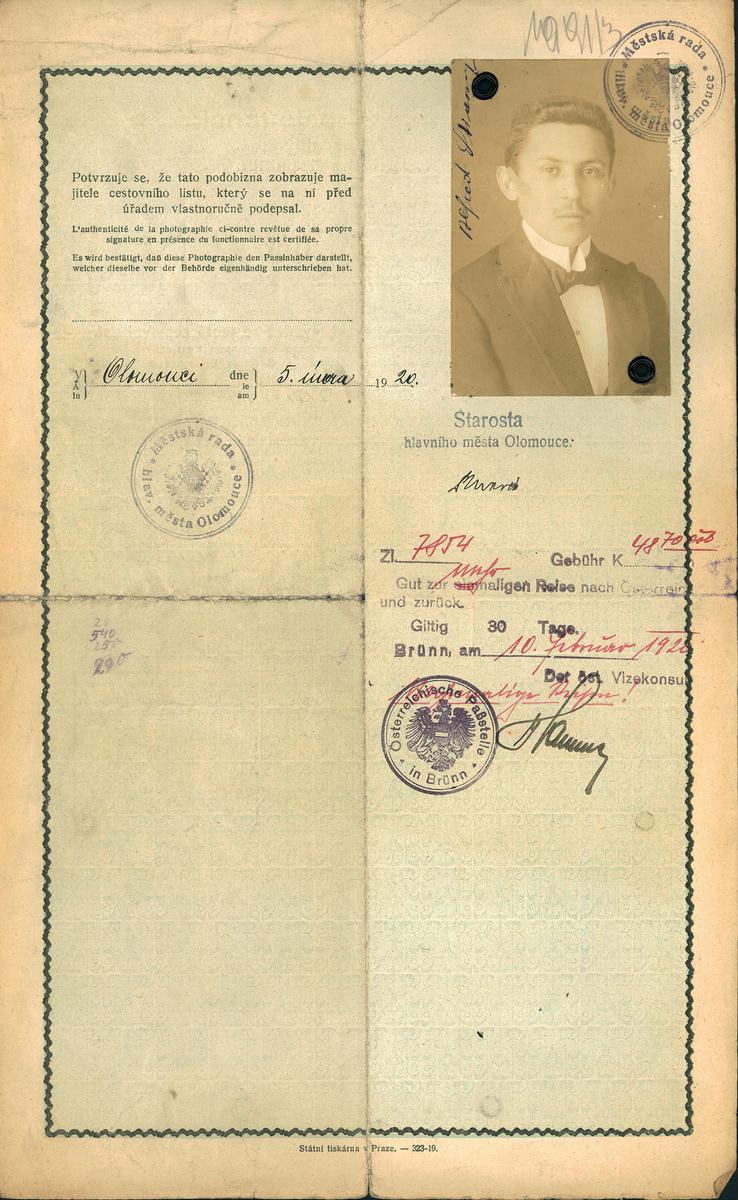 191/3
Městská rada
hlav. města Olomouce
Alfred
Potvrzuje se, že tato podobizna zobrazuje ma-
jitele cestovního listu, který se na ní před
úřadem vlastnoručně podepsal.
L'authenticité de la photographie ci-contre revêtue de sa propre
signature en présence du fonctionnaire est certifiée.
Es wird bestätigt, daß diese Photographie den Passinhaber darstellt,
welcher dieselbe vor der Behörde eigenhändig unterschrieben hat.
V Olomouci dne 5. února 1920.
A le
In am
Městská rada
hlav. města Olomouce
Starosta
hlavního města Olomouce:
Zl. 7854 Gebühr K 4870
Gut zur einmaligen Reise nach Österreich
und zurück.
Giltig 30 Tage.
Brünn, am 10. Februar 1920
Der öst. Vizekonsul
malige
Österreichische Paßstelle
in Brünn
540
25
290
Státní tiskárna v Praze. — 323-19.